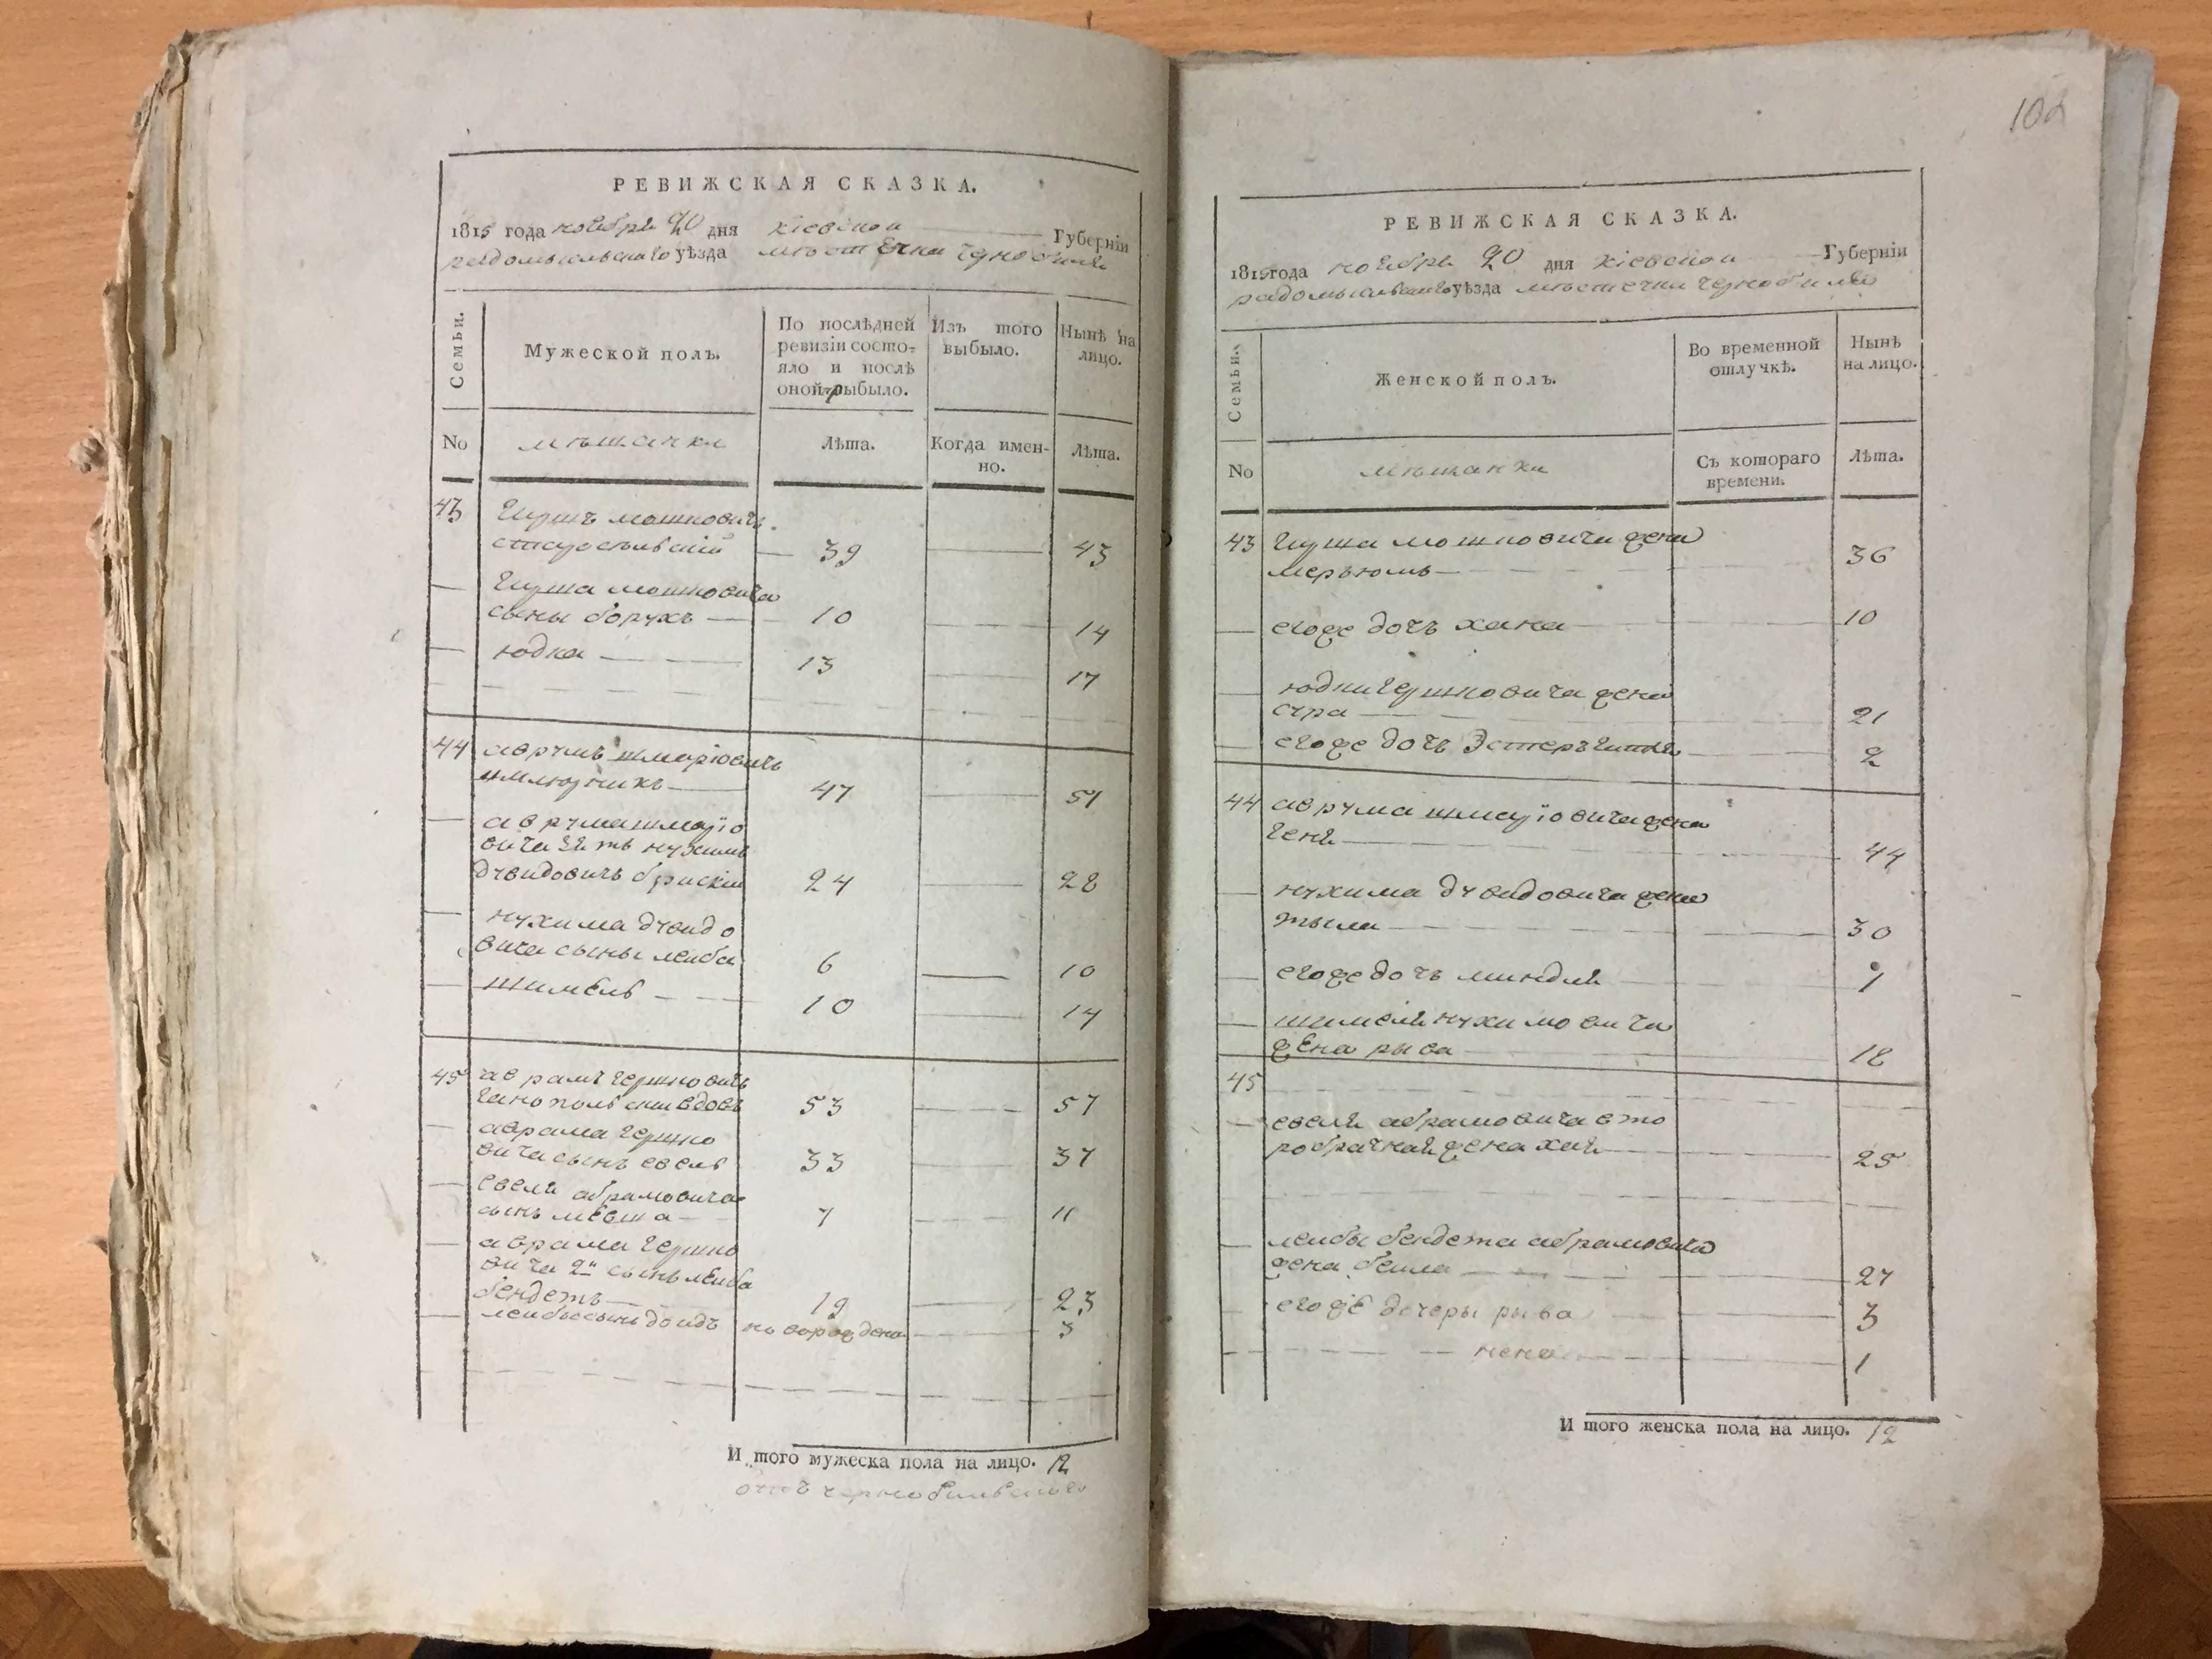 РЕВИЖСКАЯ СКАЗКА.
1815 года ноября 20 дня кіевской Губерніи
радомысльскаго уѣзда мѣстечка чернобиля
Семьи.
Мужеской полъ.
По послѣдней ревизіи состо-
яло и послѣ
оной прибыло.
Изъ того выбыло.
Нынѣ на лицо.
No
мѣщанки
Лѣта.
Когда имен-
но.
Лѣта.
43 Гершъ мошковичъ
39 43
Герша мошковича
сыны борухъ 10 14
юдка 13 17
44 аврумъ шмаріовичъ
47 51
аврума шмаріо
вича зять нухимъ
двидовичъ брискій 24 28
нухима двидо
вича сыны лейба 6 10
шимель 10 14
45 аврамъ гершковичъ
вдовъ 53 57
аврама гершко
вича сынъ евель 33 37
евеля абрамовича
сынъ мевша 7 11
аврама гершко
вича 2й сынъ лейба
бендетъ 19 23
лейбы сынъ довидъ новорожденъ 3
И того мужеска пола на лицо. 12
102
РЕВИЖСКАЯ СКАЗКА.
1815 года ноября 20 дня кіевской Губерніи
радомысльскаго уѣзда мѣстечка чернобиля
Семьи.
Женской полъ.
Во временной
отлучкѣ.
Нынѣ
на лицо.
No
мѣщанки
Съ котораго
времени.
Лѣта.
43 Герша мошковича жена
меръюмъ 36
егоже дочъ хана 10
юдки гершковича жена
сура 21
егоже дочъ Эстеръ 2
44 аврума шмаріовича жена
геня 44
нухима двидовича жена
тыла 30
егоже дочъ миндля 1
шимеля нухимовича
жена рыва 18
45
евеля абрамовича вто
робрачная жена хая 25
лейбы бендета абрамовича
жена бейла 27
егоже дочеры рыва 3
нена 1
И того женска пола на лицо. 12